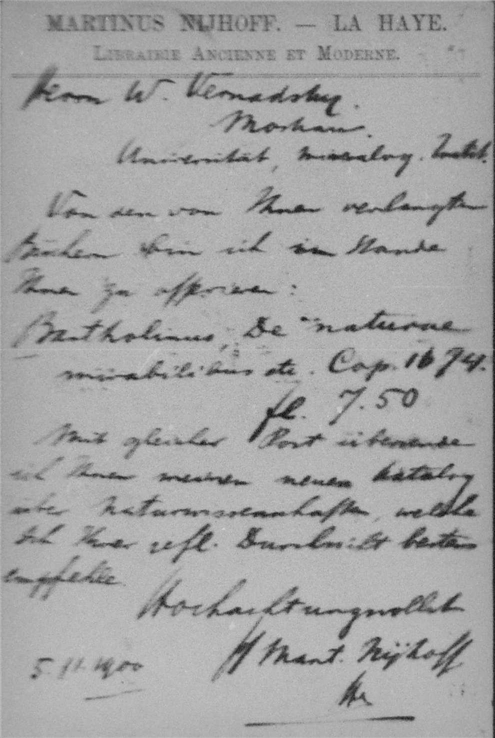 MARTINUS NIJHOFF. — LA HAYE.
LIBRAIRIE ANCIENNE ET MODERNE.
Herrn W. Vernadsky.
Moskau.
Universität, mineralog. Instit.
Von den von Ihnen verlangten
Büchern bin ich im Stande
Ihnen zu offrieren:
Bartholinus, De naturae
mirabilibus etc. Cop. 1674.
fl. 7.50
Mit gleicher Post übersende
ich Ihnen meinen neuen Katalog
über Naturwissenschaften, welche
ich Ihrer gefl. Durchsicht bestens
empfehle
Hochachtungsvollst
Mart. Nijhoff
5.11.1900